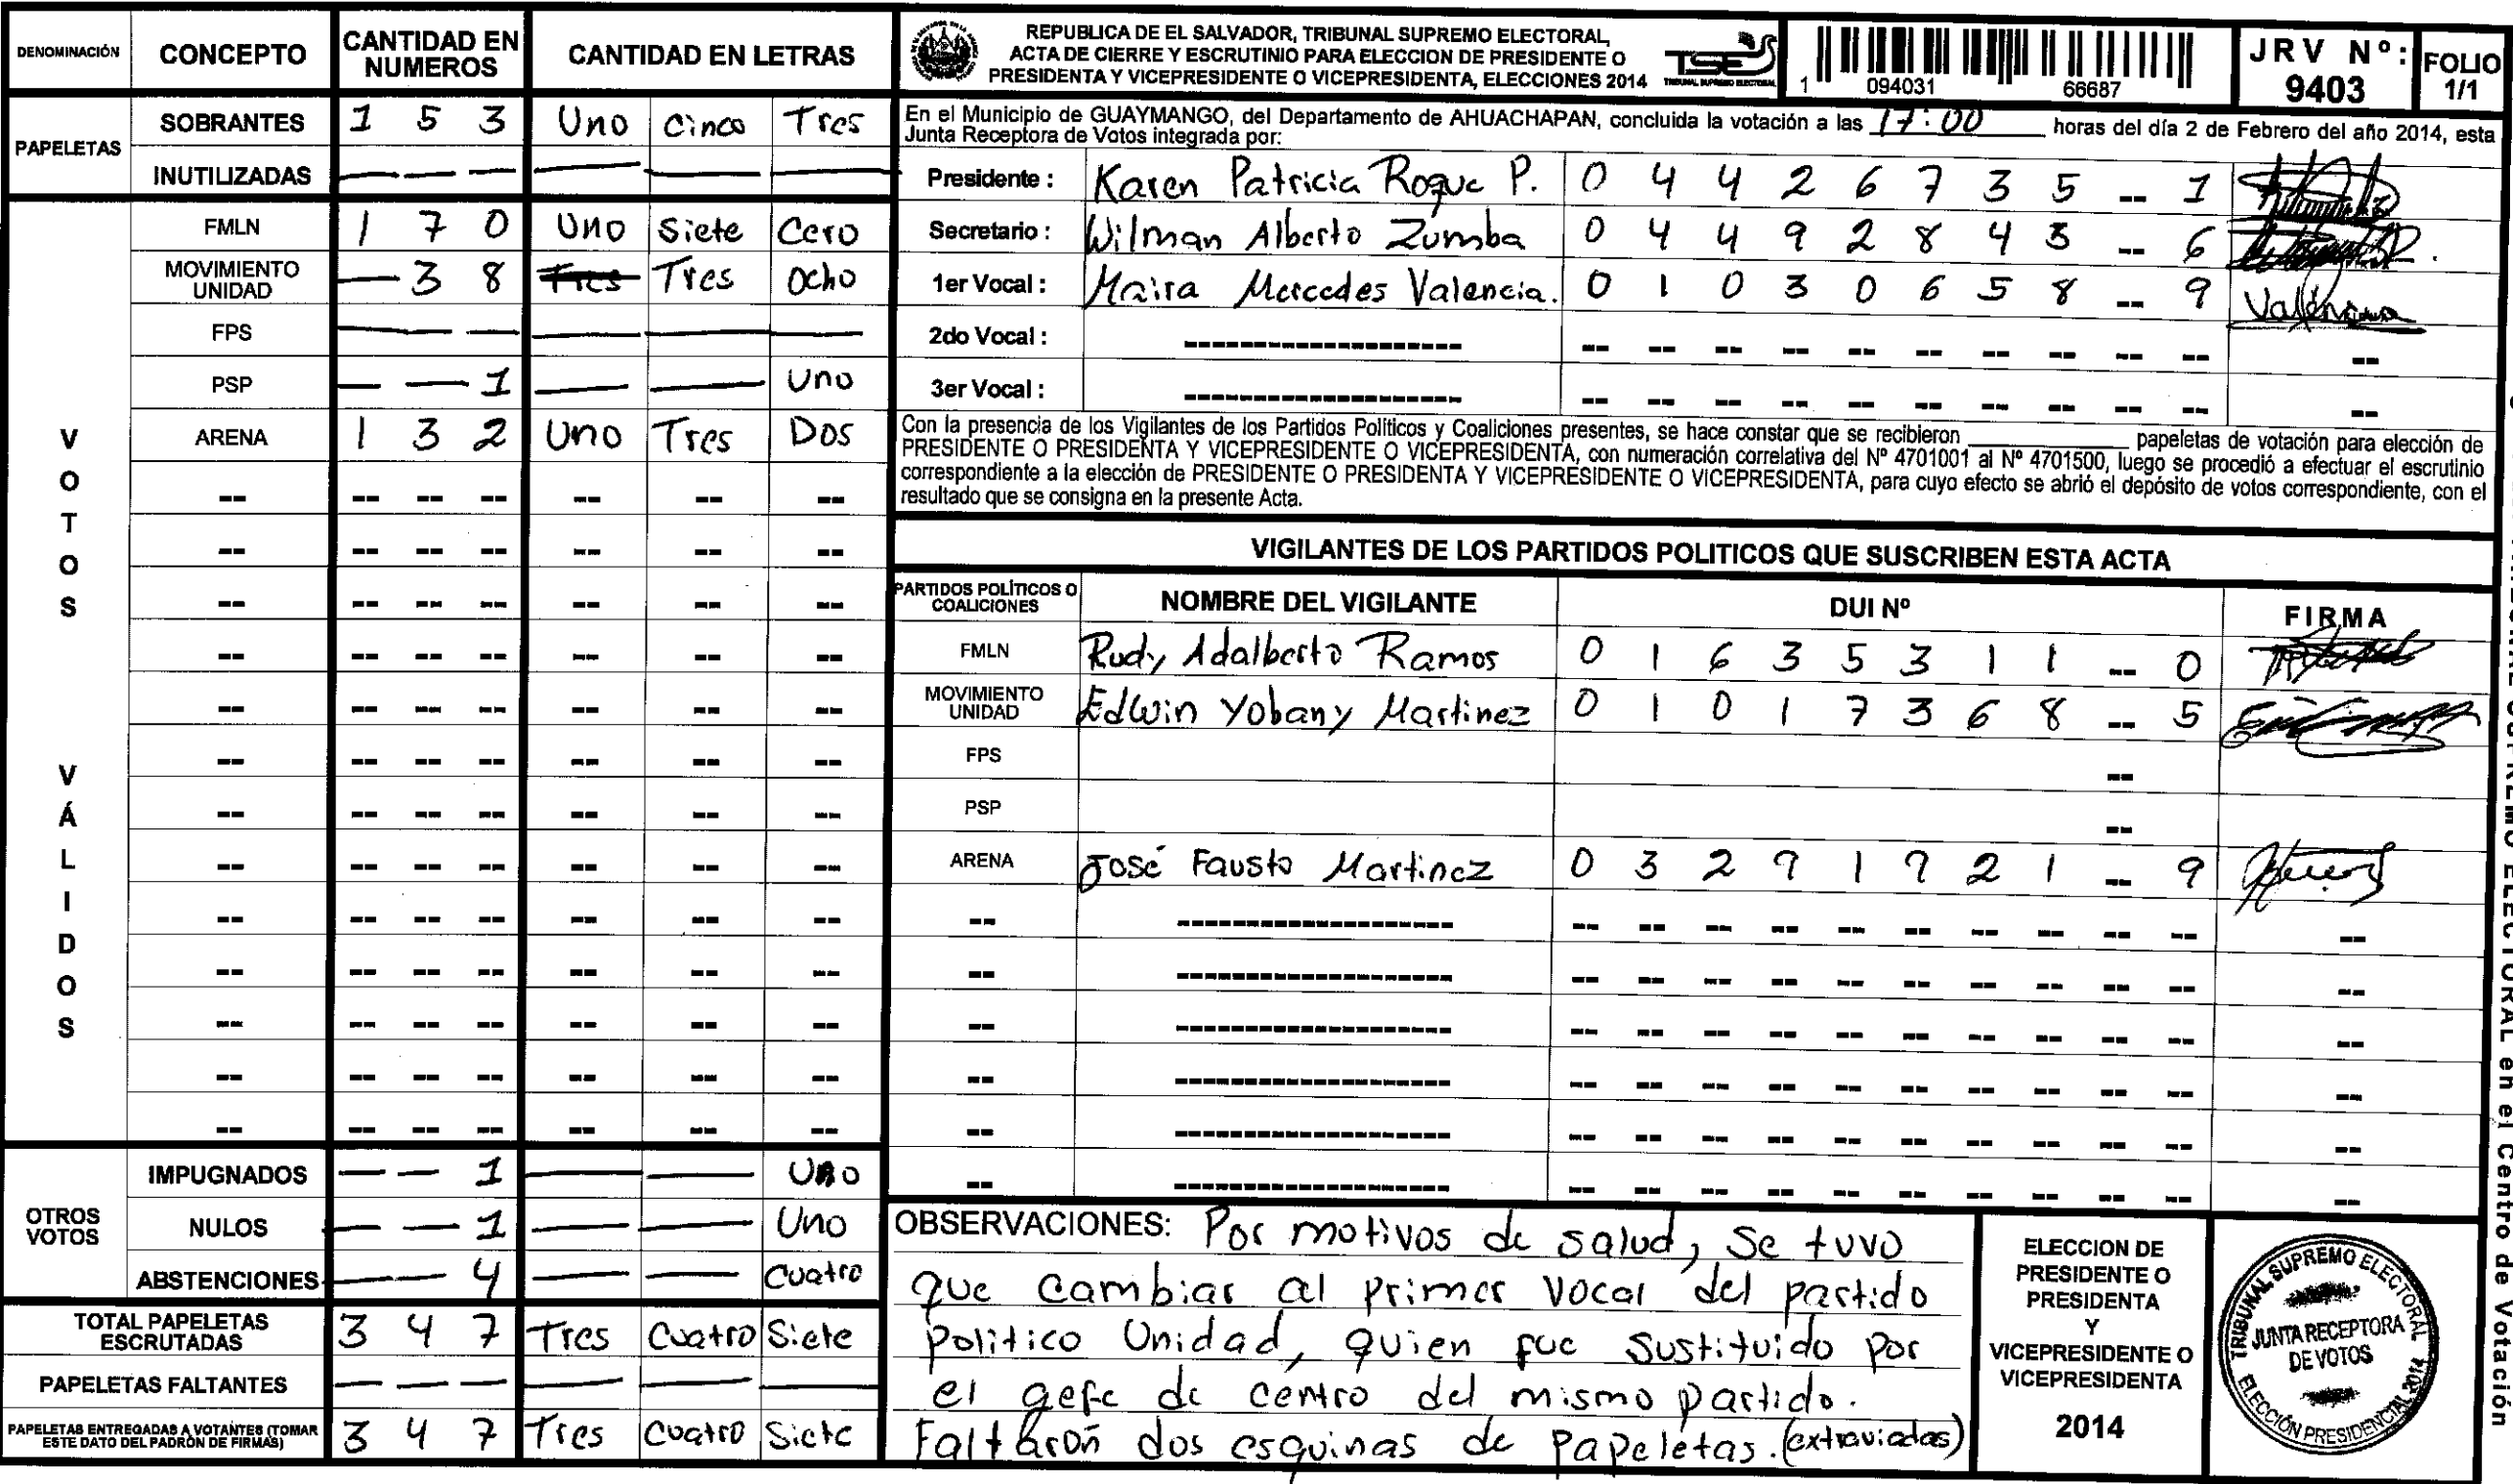 DENOMINACIÓN CONCEPTO CANTIDAD EN NUMEROS CANTIDAD EN LETRAS
PAPELETAS
SOBRANTES 1 5 3 Uno Cinco Tres
INUTILIZADAS — — — — — —
VOTOS VÁLIDOS
FMLN 1 7 0 Uno Siete Cero
MOVIMIENTO UNIDAD — 3 8 Tres Tres Ocho
FPS — — — — — —
PSP — — 1 — — Uno
ARENA 1 3 2 Uno Tres Dos
OTROS VOTOS
IMPUGNADOS — — 1 — — Uno
NULOS — — 1 — — Uno
ABSTENCIONES — — 4 — — Cuatro
TOTAL PAPELETAS ESCRUTADAS 3 4 7 Tres Cuatro Siete
PAPELETAS FALTANTES — — — — — —
PAPELETAS ENTREGADAS A VOTANTES (TOMAR ESTE DATO DEL PADRÓN DE FIRMAS) 3 4 7 Tres Cuatro Siete
REPUBLICA DE EL SALVADOR, TRIBUNAL SUPREMO ELECTORAL,
ACTA DE CIERRE Y ESCRUTINIO PARA ELECCION DE PRESIDENTE O
PRESIDENTA Y VICEPRESIDENTE O VICEPRESIDENTA, ELECCIONES 2014
TSE
TRIBUNAL SUPREMO ELECTORAL
1 094031 66687
JRV Nº: 9403
FOLIO 1/1
En el Municipio de GUAYMANGO, del Departamento de AHUACHAPAN, concluida la votación a las 17:00 horas del día 2 de Febrero del año 2014, esta
Junta Receptora de Votos integrada por:
Presidente : Karen Patricia Roque P. 0 4 4 2 6 7 3 5 -- 1
Secretario : Wilman Alberto Zumba 0 4 4 9 2 8 4 3 -- 6
1er Vocal : Maira Mercedes Valencia. 0 1 0 3 0 6 5 8 -- 9
2do Vocal :
3er Vocal :
Con la presencia de los Vigilantes de los Partidos Políticos y Coaliciones presentes, se hace constar que se recibieron ____ papeletas de votación para elección de
PRESIDENTE O PRESIDENTA Y VICEPRESIDENTE O VICEPRESIDENTA, con numeración correlativa del Nº 4701001 al Nº 4701500, luego se procedió a efectuar el escrutinio
correspondiente a la elección de PRESIDENTE O PRESIDENTA Y VICEPRESIDENTE O VICEPRESIDENTA, para cuyo efecto se abrió el depósito de votos correspondiente, con el
resultado que se consigna en la presente Acta.
VIGILANTES DE LOS PARTIDOS POLITICOS QUE SUSCRIBEN ESTA ACTA
PARTIDOS POLÍTICOS O COALICIONES NOMBRE DEL VIGILANTE DUI Nº FIRMA
FMLN Rudy Adalberto Ramos 0 1 6 3 5 3 1 1 -- 0
MOVIMIENTO UNIDAD Edwin Yobany Martinez 0 1 0 1 7 3 6 8 -- 5
FPS --
PSP --
ARENA José Fausto Martinez 0 3 2 9 1 9 2 1 -- 9
OBSERVACIONES: Por motivos de salud, Se tuvo
que cambiar al primer vocal del partido
politico Unidad, quien fue sustituido por
el gefe de centro del mismo partido.
Faltarón dos esquinas de papeletas. (extraviadas)
ELECCION DE
PRESIDENTE O
PRESIDENTA
Y
VICEPRESIDENTE O
VICEPRESIDENTA
2014
TRIBUNAL SUPREMO ELECTORAL
JUNTA RECEPTORA
DE VOTOS
ELECCIÓN PRESIDENCIAL 2014
SUPREMO ELECTORAL en el Centro de Votación